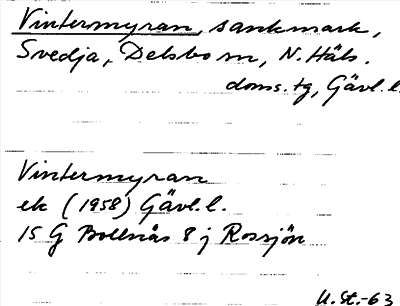 Vintermyran, sankmark,
Svedja, Delsbo sn, N. Häls.
doms. tg, Gävl. l.
Vintermyran
ek (1958) Gävl. l.
15 G Bollnäs 8 j Rossjön
U. St.-63